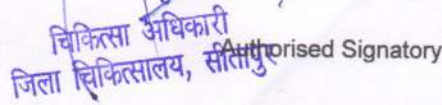 चिकित्सा अधिकारी
जिला चिकित्सालय, सीतापुर
Authorised Signatory